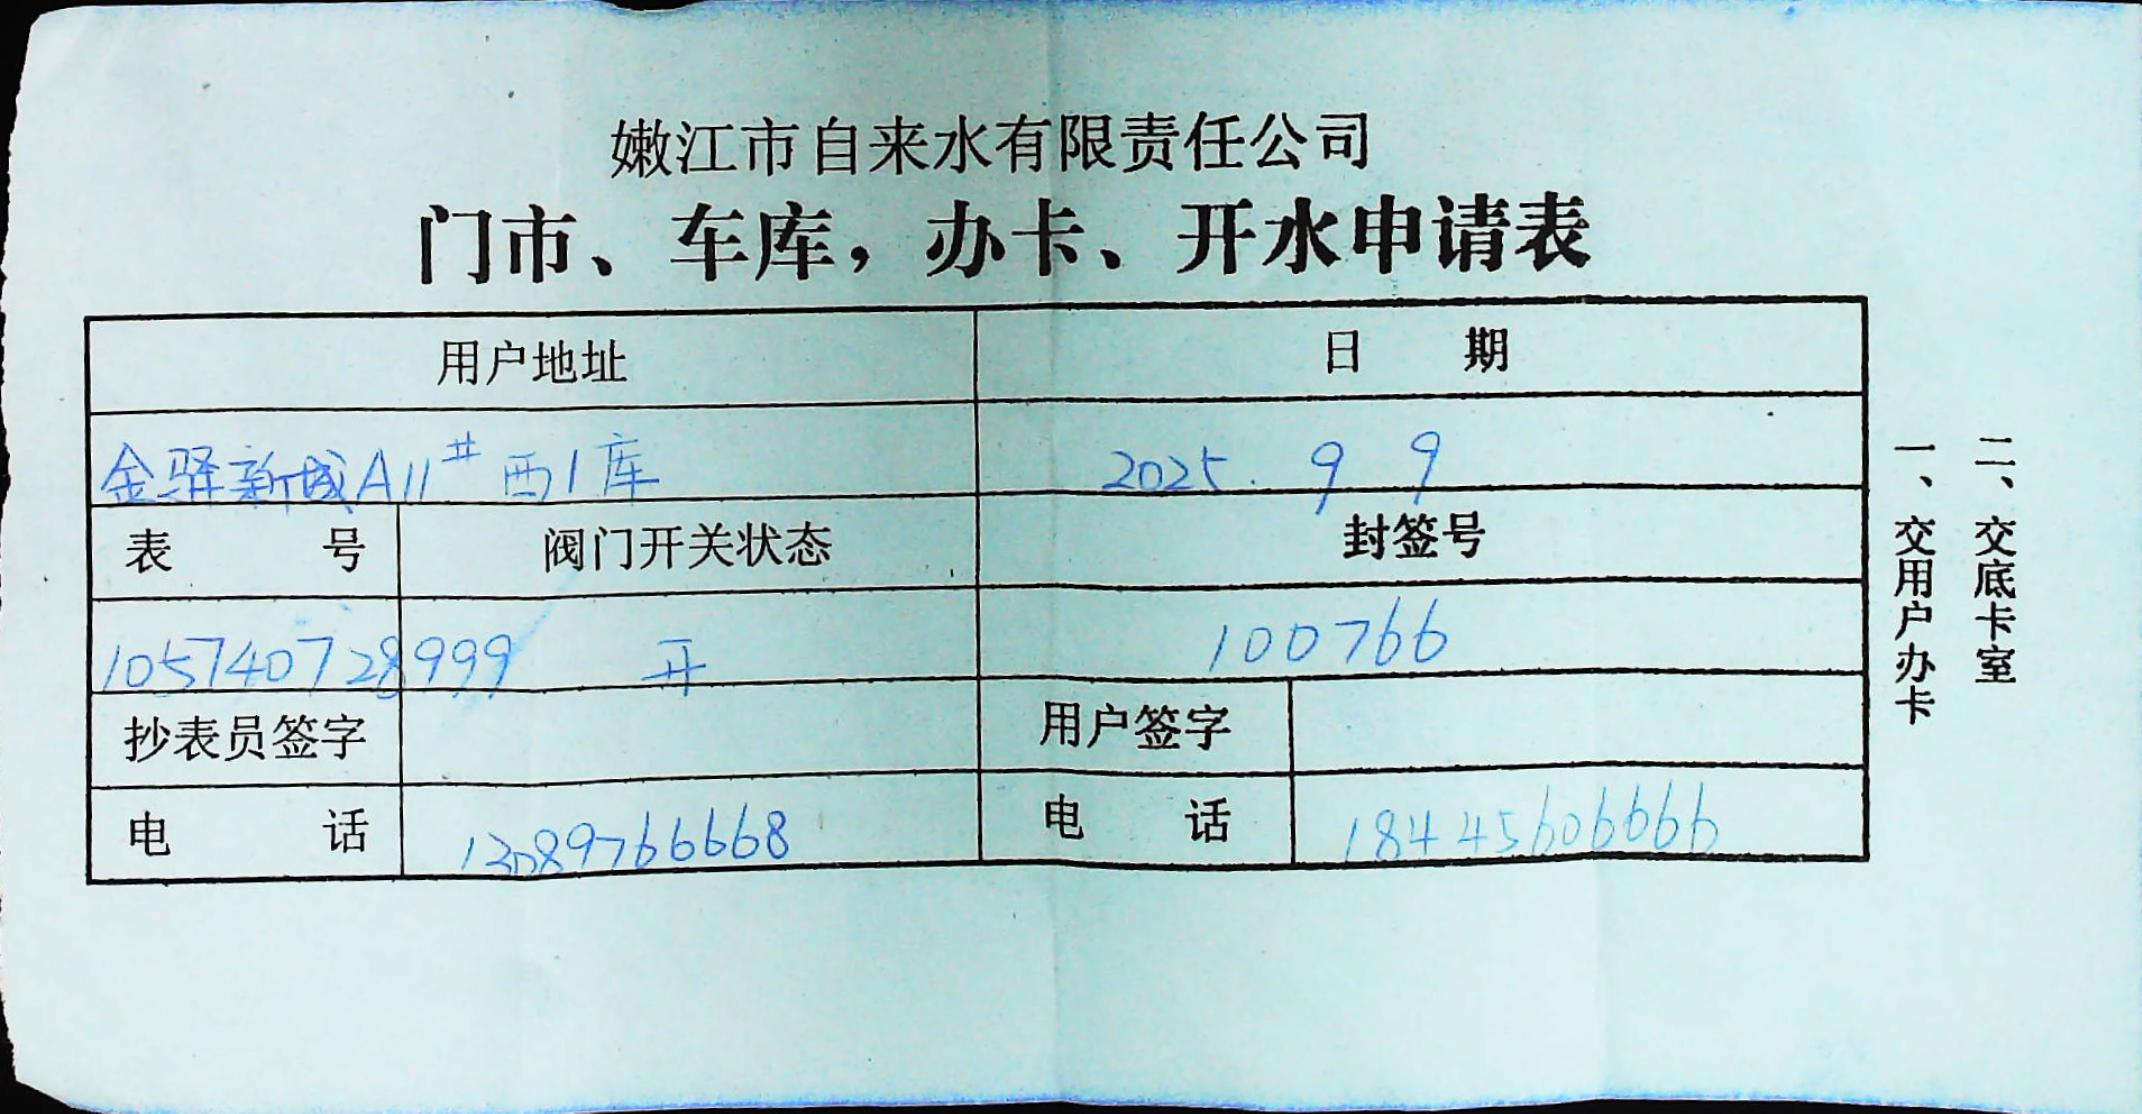 嫩江市自来水有限责任公司
门市、车库，办卡、开水申请表
用户地址 日 期
金驿新城A11# 西1库 2025. 9 9
表 号 阀门开关状态 封签号
105740728999 开 100766
抄表员签字 用户签字
电 话 13089766668 电 话 18445606666
一、交用户办卡
二、交底卡室